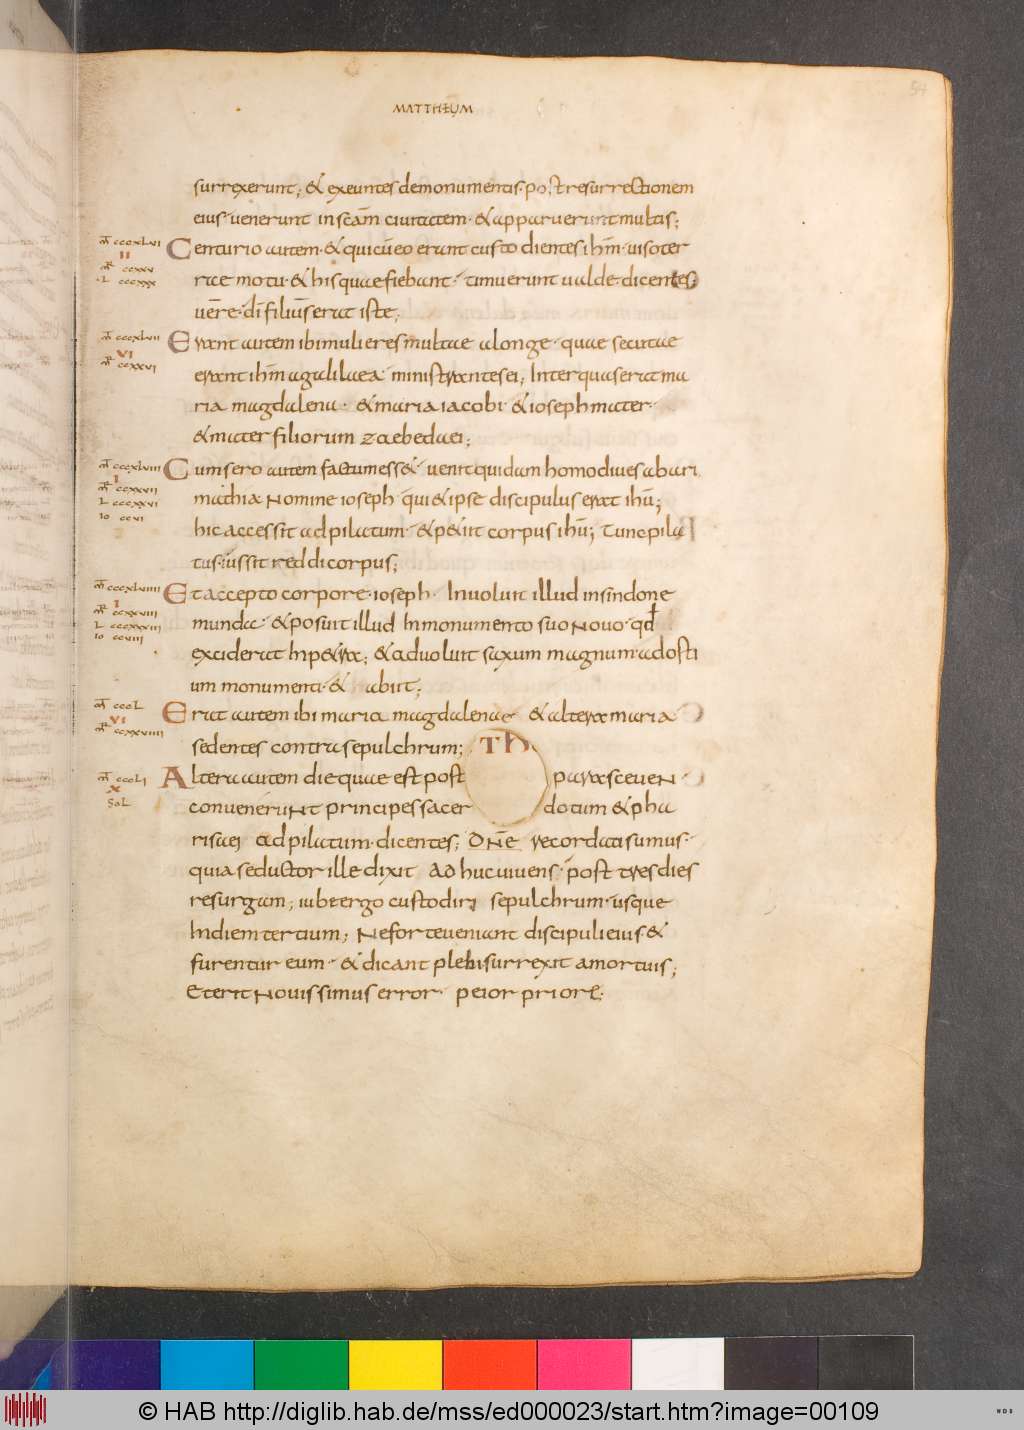 54
MATTHEUM
surrexerunt; & exeuntes demonumentis. post resurrectionem
eius uenerunt inscam ciuitatem. & apparuerunt multis;
Centurio autem. & qui cu eo erant custodientes ihm. uiso ter
rae motu. & his quae fiebant. timuerunt ualde. dicentes
uere. di filius erat iste;
Erant autem ibi mulieres multae alonge. quae secutae
erant ihm agalilaea ministrantes ei; Inter quas erat ma
ria magdalena. & maria iacobi. & ioseph mater.
& mater filiorum zaebedaei;
Cum sero autem factum ess& uenit quidam homo diues abari
mathia Nomine ioseph qui & ipse discipulus erat ihu;
hic accessit ad pilatum. & p&iit corpus ihu; Tunc pila
tus. iussit reddi corpus;
Et accepto corpore. ioseph. Inuoluit illud insindone
munda. & posuit illud In monumento suo Nouo. qd
exciderat In p&ra; & aduoluit saxum magnum ad osti
um monumenti. & abiit;
Erat autem ibi maria magdalenae & altera maria
sedentes contra sepulchrum; Th
Altera autem die quae est post parasceueN.
conueneruNt principes sacerdotum & pha
risaei ad pilatum. dicentes; DNe recordati sumus.
quia seductor ille dixit Adhuc uiuens. post tres dies
resurgam; iube ergo custodiri sepulchrum. usque
In diem tertium; Ne forte ueniant discipuli eius. &
furentur eum. & dicant plebi surrexit amortuis;
Et erit Nouissimus error. peior priore;
mt cccxlvi
II
mr ccxxv
L cccxxx
mt cccxlvii
VI
mr ccxxvi
mt cccxlviii
I
mr ccxxvii
L cccxxvi
Io ccvi
mt cccxlviiii
I
mr ccxxviii
L cccxxxiii
Io ccviii
mt cccL
VI
mr ccxxviiii
mt cccLi
X
SoL
© HAB http://diglib.hab.de/mss/ed000023/start.htm?image=00109
WDB